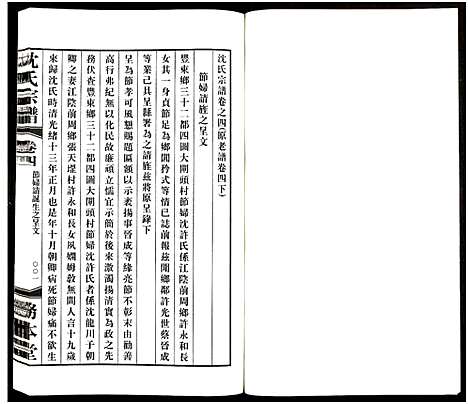 沈氏宗譜卷之四原老譜卷四下
節婦請旌之呈文
豐東鄉三十二都四圖大閘頭村節婦沈許氏係江陰前周鄉許永和長
女其一身貞節足為鄉閭矜式等情已具誌前報茲開鄉鄰許光世蔡晉成
等業已具呈縣署為之請旌茲將原呈錄下
呈為節孝可風懇賜題匾額以示表揚事晉成等緣亮節不彰末由勸善
高行弗紀無以化民故廉頑立懦言坊行表於後來激濁揚清實為政之先
務伏查豐東鄉三十二都四圖大閘頭村節婦沈許氏者係沈龍川子朝
卿之妻江陰前周鄉張天墥村許永和長女夙嫺姆教無間人言十九歲
來歸沈氏時清光緒十三年正月也是年十月朝卿病死節婦痛不欲生
沈氏宗譜
卷四
節婦請誕生之呈文
〇〇一
務本堂